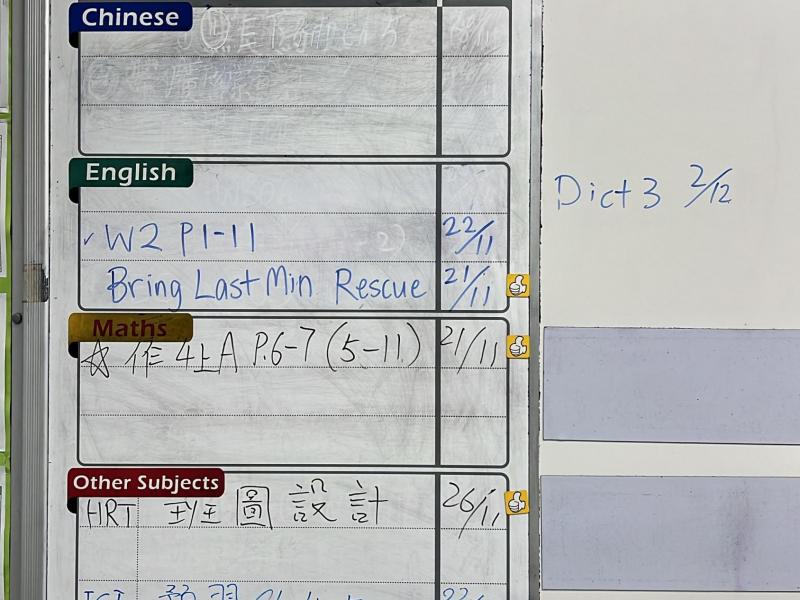 Chinese
English
✓ W2 P1-11 22/11
Bring Last Min Rescue 21/11
Dict 3 2/12
Maths
☆ 作4上A P.6-7 (5-11) 21/11
Other Subjects
HRT 圖設計 26/11
預習